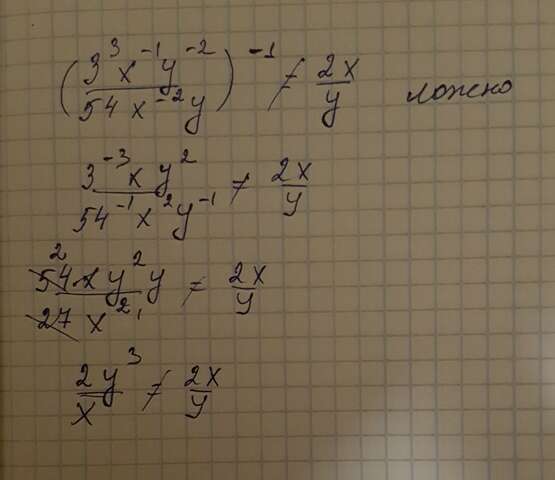 (3³x⁻¹y⁻² / 54x⁻²y)⁻¹ ≠ 2x/y ложно
3⁻³xy² / 54⁻¹x²y⁻¹ ≠ 2x/y
2
54xy²y / 27x² 1 ≠ 2x/y
2y³/x ≠ 2x/y